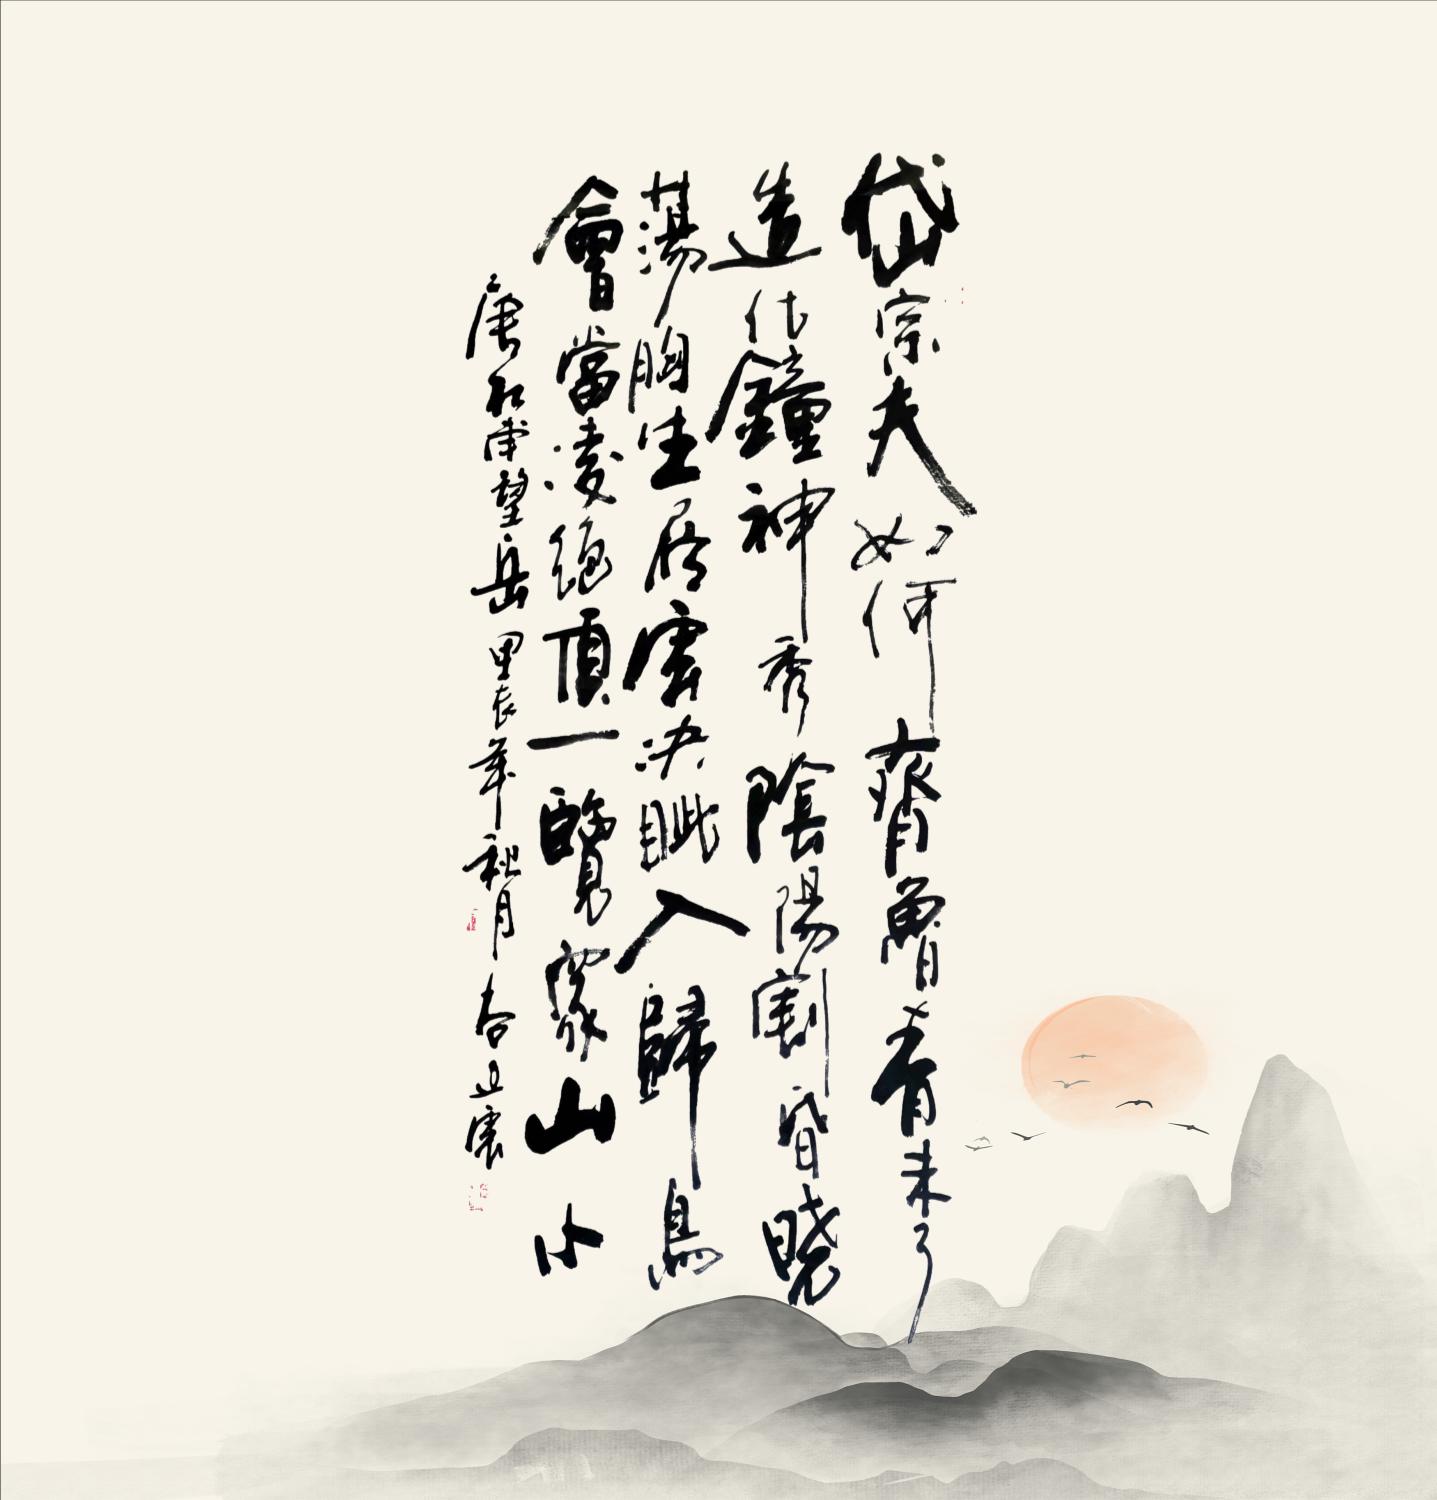 岱宗夫如何齊魯青未了
造化鐘神秀陰陽割昏曉
蕩胸生層雲決眦入歸鳥
會當凌絕頂一覽衆山小
唐杜甫望岳甲辰年秋月